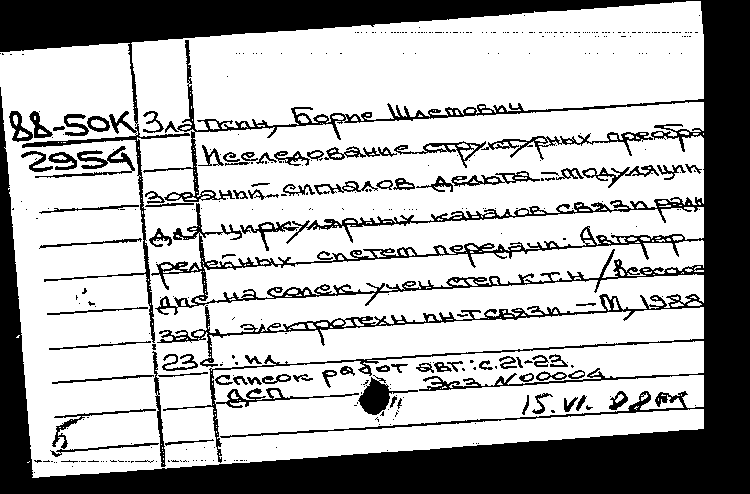 88-50К Златкин, Борис Шлемович
2954 Исследование структурных преобра
зований сигналов дельта-модуляции
для циркулярных каналов связи радио
релейных систем передачи: Автореф
дис. на соиск. учен. степ. к.т.н / Всесоюз
заоч. электротехн. ин-т связи. - М., 1988
23 с. : ил.
Список работ авт.: с. 21-23.
ДСП. Экз. N 00004.
15.VI.88
5